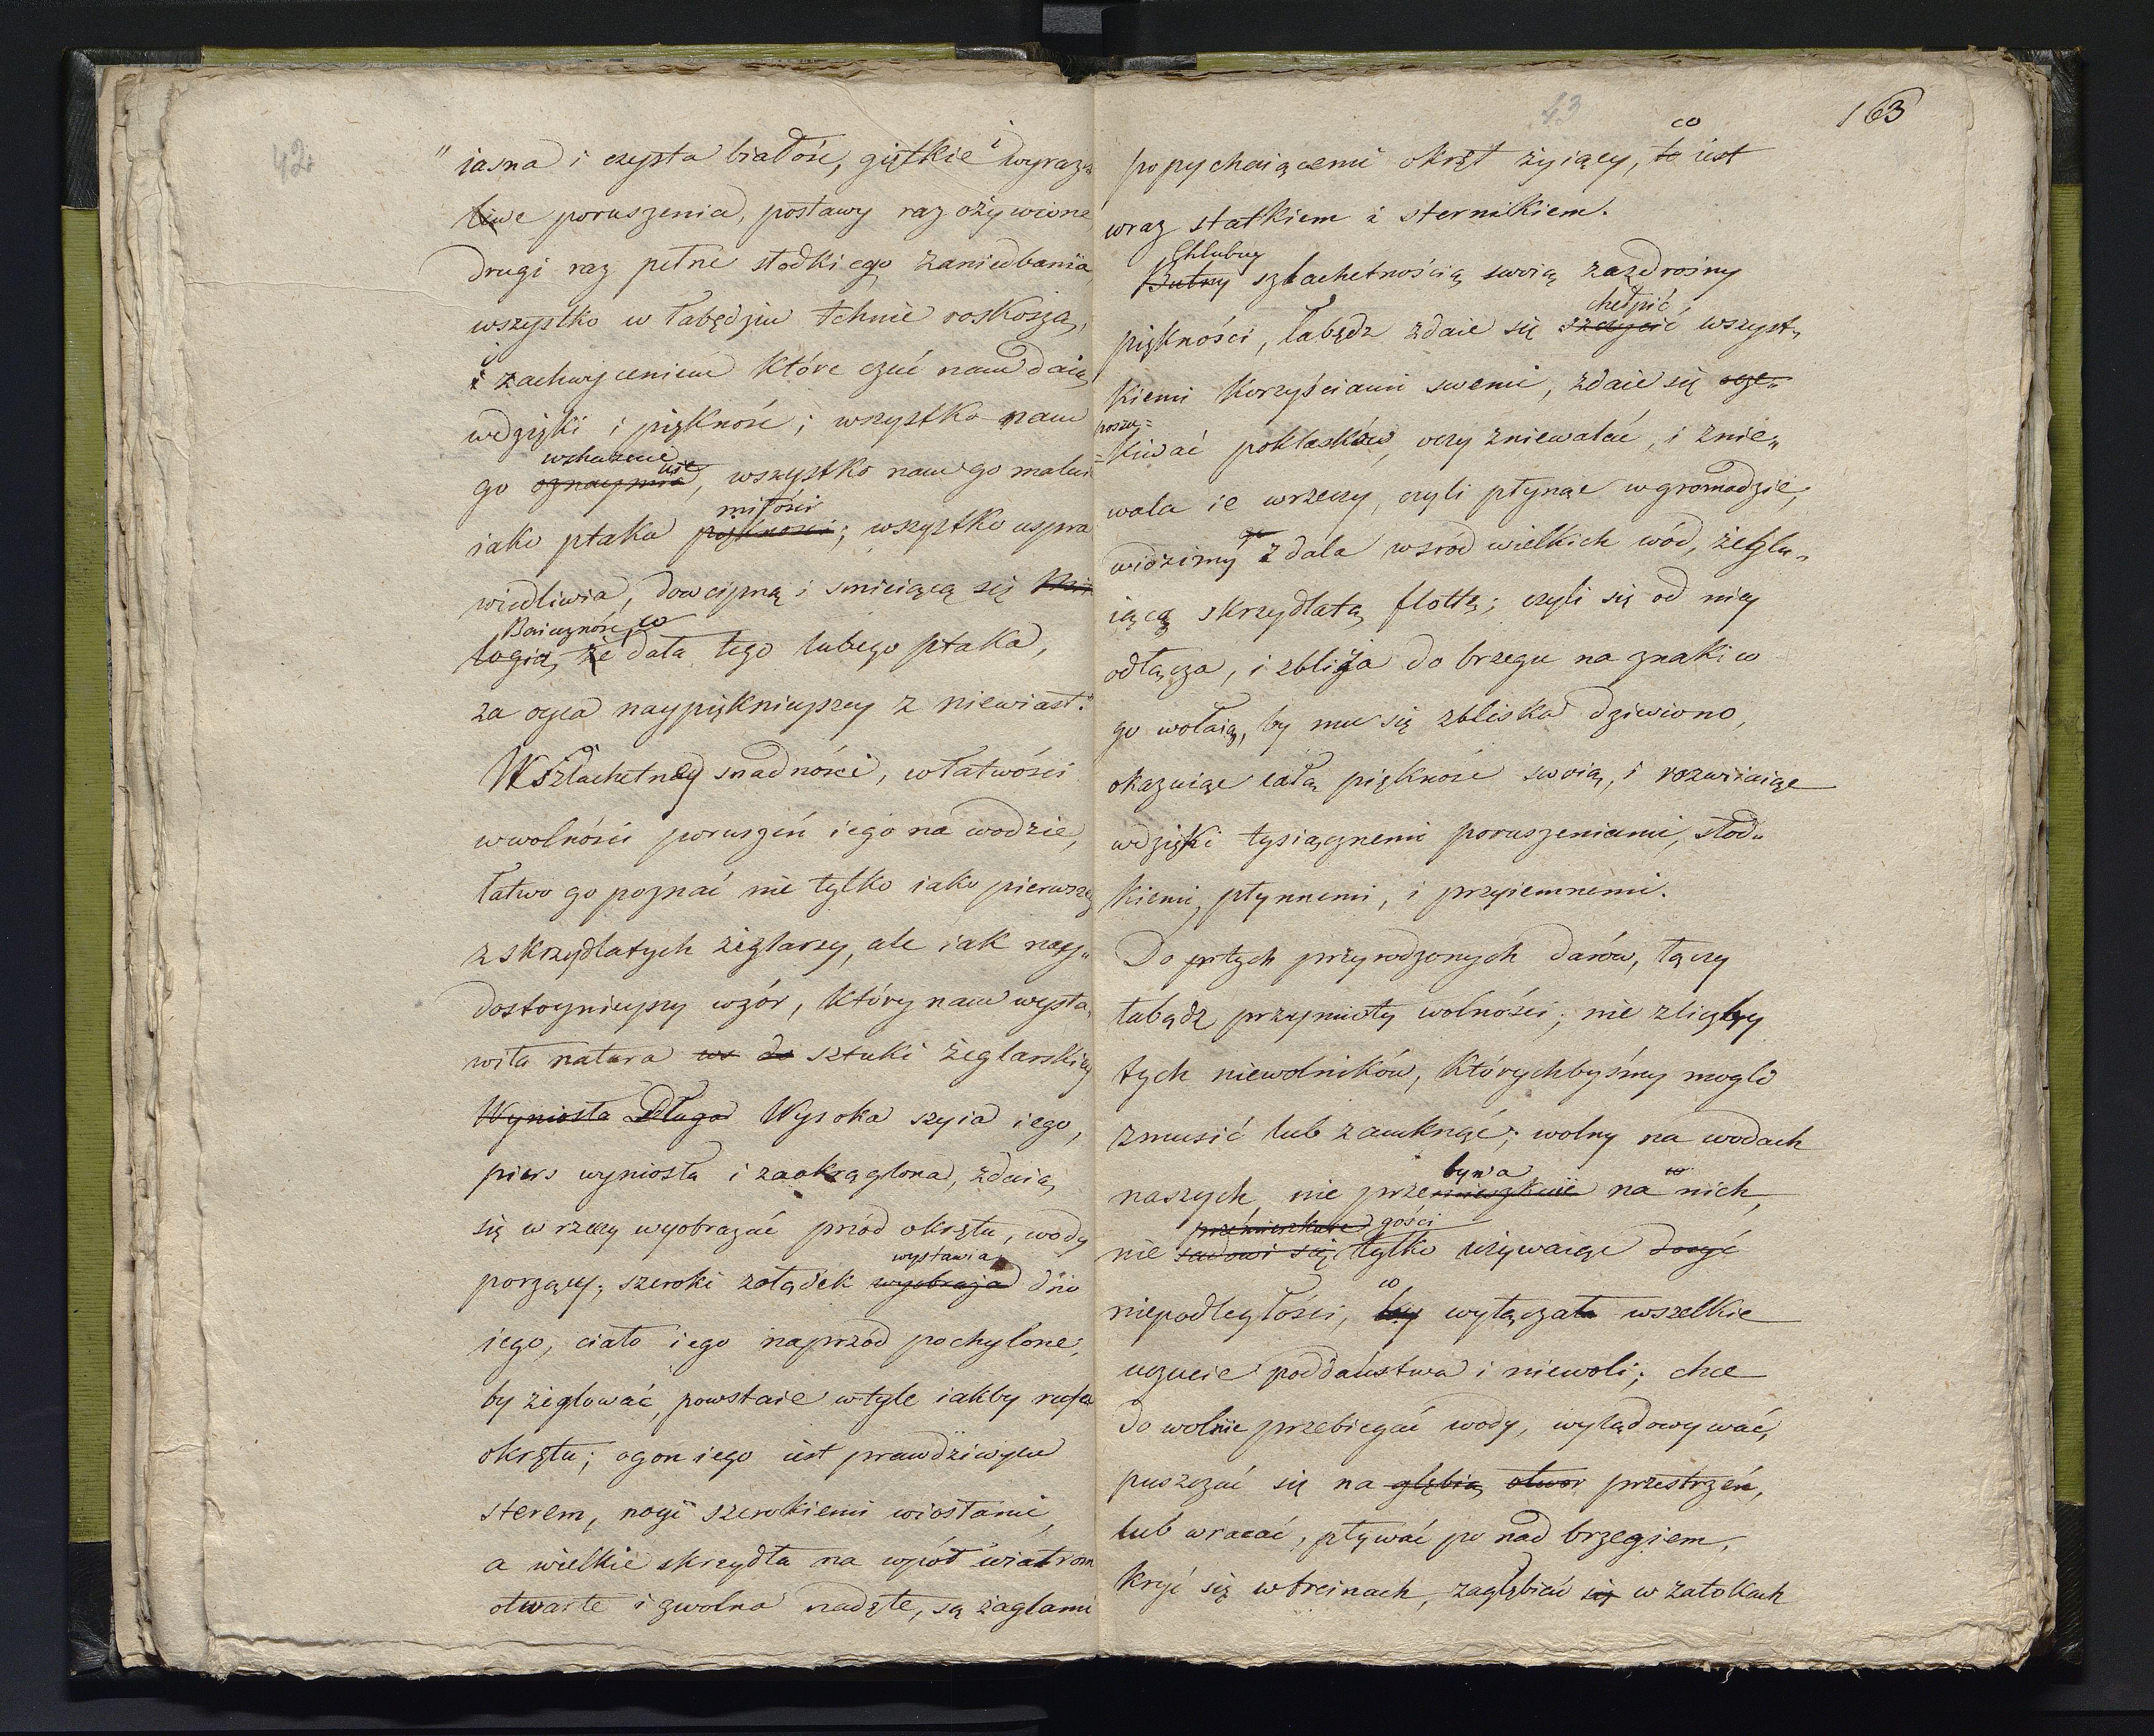 42
„iasna i czysta białość, giętkie i wyraz„
liwe poruszenia, postawy raz ożywione
drugi raz pełne słodkiego zaniedbania
wszystko w łabędziu tchnie roskoszą,
i zachwyceniem które czuć nam daią
wdzięki i piękność; wszystko nam
wskazuie
go oznaymia, wszystko nam go maluie
miłości
iako ptaka piękności; wszystko uspra
wiedliwia, dowcipną i smieiącą się
Baieczność, co
logią, że dała tego lubego ptaka,
za oyca naypięknieyszey z niewiast."
W szlachetney snadności, w łatwości
w wolności poruszeń iego na wodzie,
łatwo go poznać nie tylko iako pierwszego
z skrzydlatych żeglarzy, ale iak nay„
dostoynieyszy wzór, który nam wysta„
wiła natura do sztuki żeglarskiey
Wyniosła Długa Wysoka szyia iego,
piers wyniosła i zaokrąglona, zdaią
się w rzeczy wyobrażać przód okrętu, wody
wystawia
porzący; szeroki żołądek wyobraża dno
iego, ciało iego naprzód pochylone,
by żeglować, powstaie w tyle iakby rufa
okrętu; ogon iego iest prawdziwym
sterem, nogi szerokiemi wiosłami,
a wielkie skrzydła na wpół wiatrom
otwarte i zwolna nadęte, są żaglami
43
163
co
popychaiącemi okręt żyiący, to iest
wraz statkiem i sternikiem.
Chlubny
Butny szlachetnością swoią zazdrosny
chełpić
piękności, łabędz zdaie się szczycić wszyst„
kiemi korzyściami swemi, zdaie się ocze„
poszu=
=kiwać poklasków, oczy zniewalać, i znie„
wala ie w rzeczy, czyli płynąc w gromadzie,
widzimy go z dala wsród wielkich wód, żeglu„
iącą skrzydlatą flottę; czyli się od niey
odłącza, i zbliża do brzegu na znaki co
go wołaią, by mu się zbliska dziwiono,
okazuiąc całą piękność swoią, i rozwiiaiąc
wdzięki tysiącznemi poruszeniami, słod„
kiemi, płynnemi, i przyiemnemi.
Do tych przyrodzonych darów, łączy
łabądz przymioty wolności; nie z liczby
tych niewolników, którychbyśmy mogli
zmusić lub zamknąć; wolny na wodach
bywa
naszych, nie przemieszkuie na nich,
przemieszkuie gości
nie sadowi się, tylko używaiąc dosyć
co
niepodległości, by wyłączała wszelkie
uczucie poddaństwa i niewoli; chce
do wolnie przebiegać wody, wylądowywać,
puszczać się na głębią otwor przestrzeń,
lub wracać, pływać po nad brzegiem,
kryć się w trcinach, zagłębiać się w zatokach